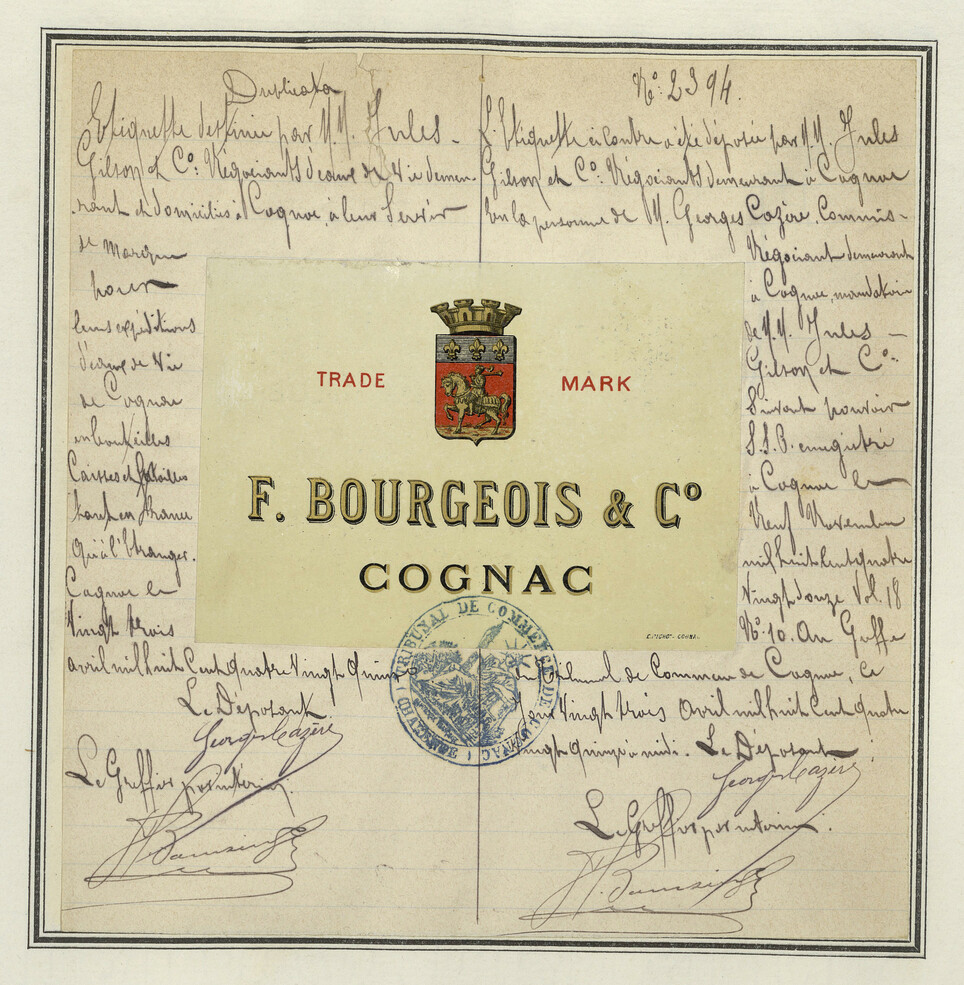 Duplicata
Etiquette destinée par M.M. Jules
Gilson et Cº: Négociants d'eaux de Vie demeu-
rant et domiciliés à Cognac, à leur Servir
de Marque
pour
leurs expéditions
d'eaux de Vie
de Cognac
en bouteilles
Caisses et futailles
tant en France
qu'à l'Etranger.
Cognac le
Vingt trois
avril mil huit Cent quatre Vingt quinze
Le Déposant
Georges Cazère
Le Greffier par intérim.
Nº: 2394.
L'Etiquette ci contre a été déposée par M.M. Jules
Gilson et Cº: Négociants demeurant à Cognac
En la personne de M. Georges Cazère, Commis-
Négociant demeurant
à Cognac, mandataire
de M.M. Jules
Gilson et Cº:
Suivant pouvoir
S.S.P. enregistré
à Cognac le
Neuf Novembre
mil huit Cent quatre
Vingt douze Vol. 18
Nº 10. Au Greffe
du Tribunal de Commerce de Cognac, ce
jour Vingt trois Avril mil huit Cent quatre
Vingt quinze à midi. Le Déposant
Georges Cazère
Le Greffier par intérim.
TRADE MARK
F. BOURGEOIS & Cº
COGNAC
TRIBUNAL DE COMMERCE DE COGNAC
(CHARENTE)